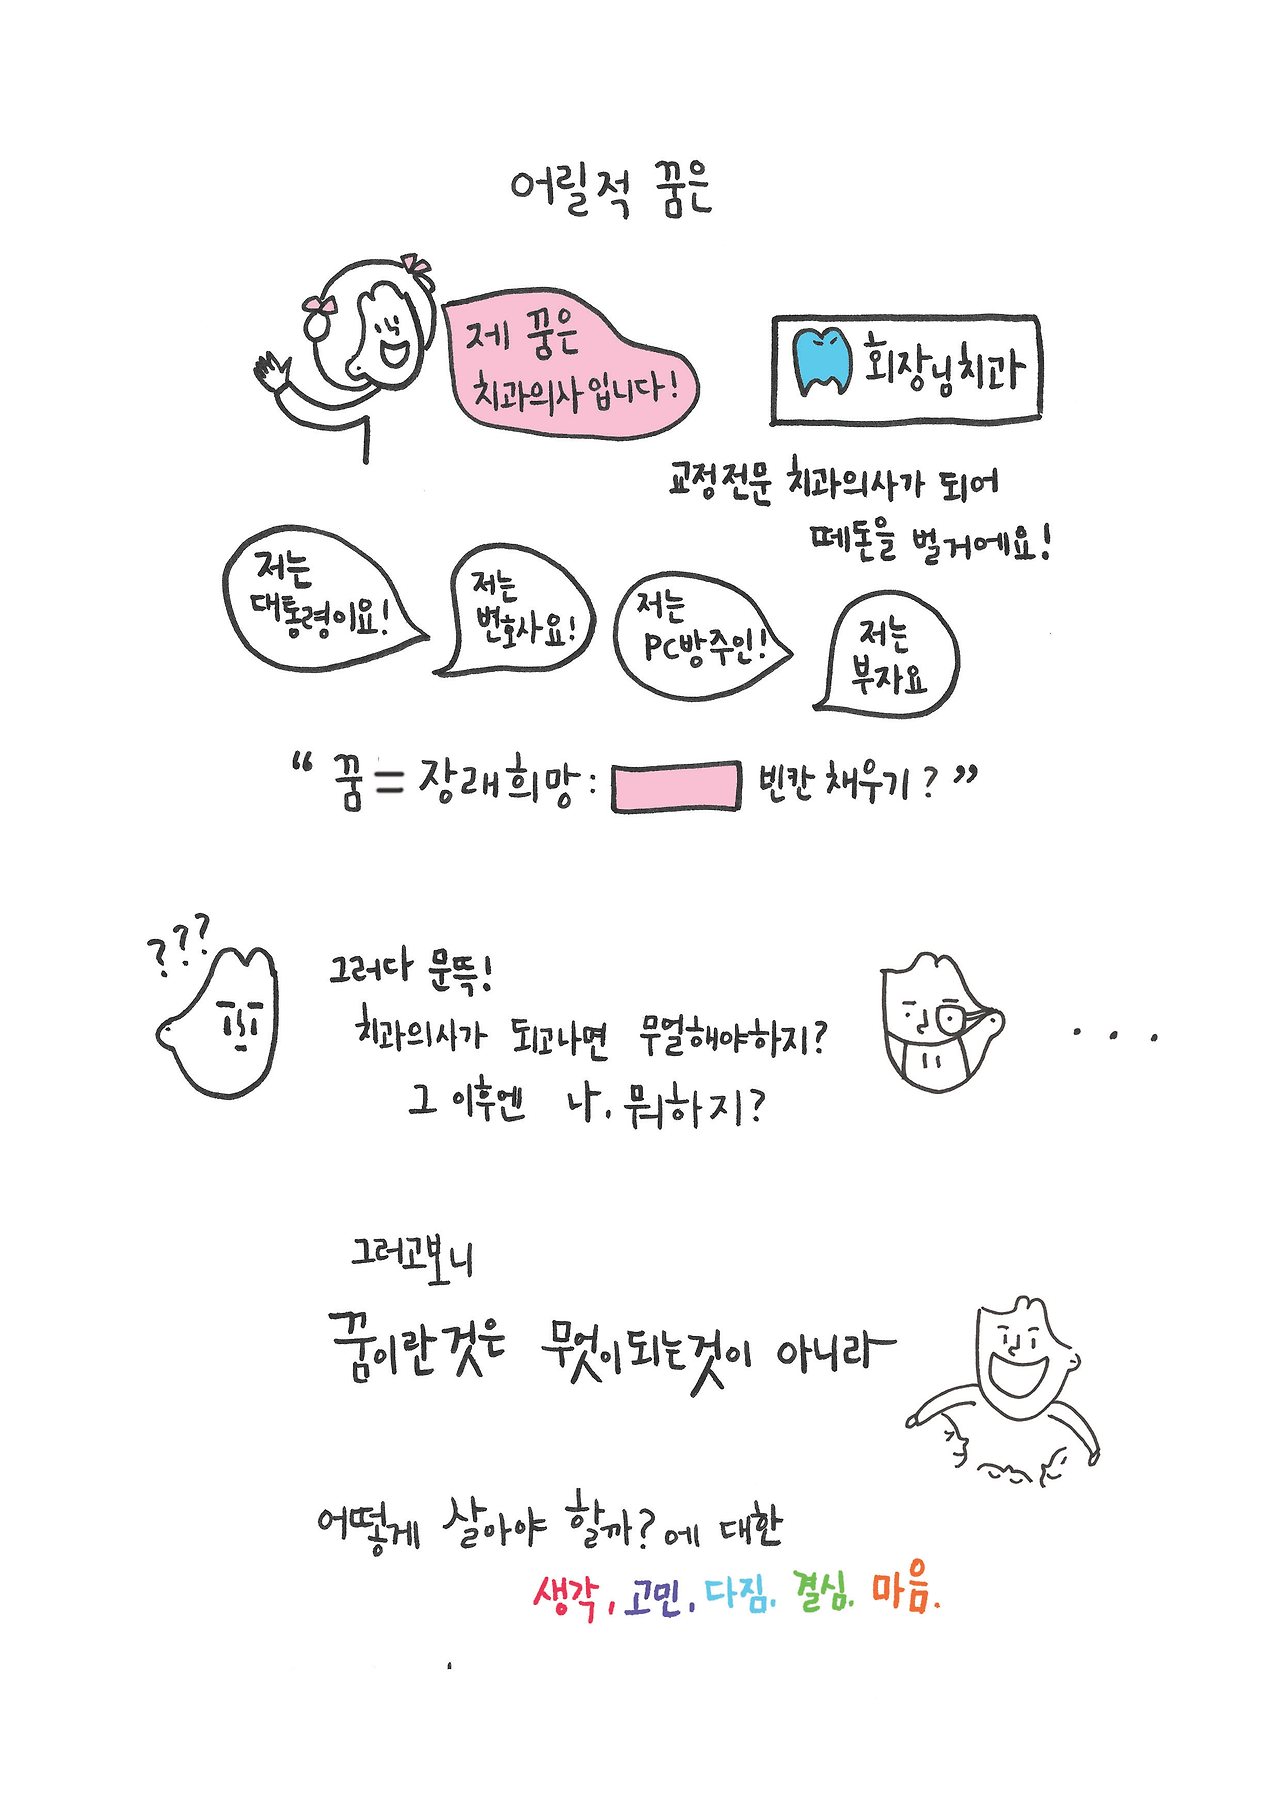 어릴적 꿈은
제 꿈은
치과의사입니다!
회장님치과
교정전문 치과의사가 되어
떼돈을 벌거에요!
저는
대통령이요!
저는
변호사요!
저는
PC방주인!
저는
부자요
“꿈=장래희망: 빈칸 채우기?”
???
그러다 문뜩!
치과의사가 되고나면 무얼해야하지?
그 이후엔 나, 뭐하지?
...
그러고보니
꿈이란것은 무엇이되는것이 아니라
어떻게 살아야 할까?에 대한
생각, 고민, 다짐, 결심, 마음.